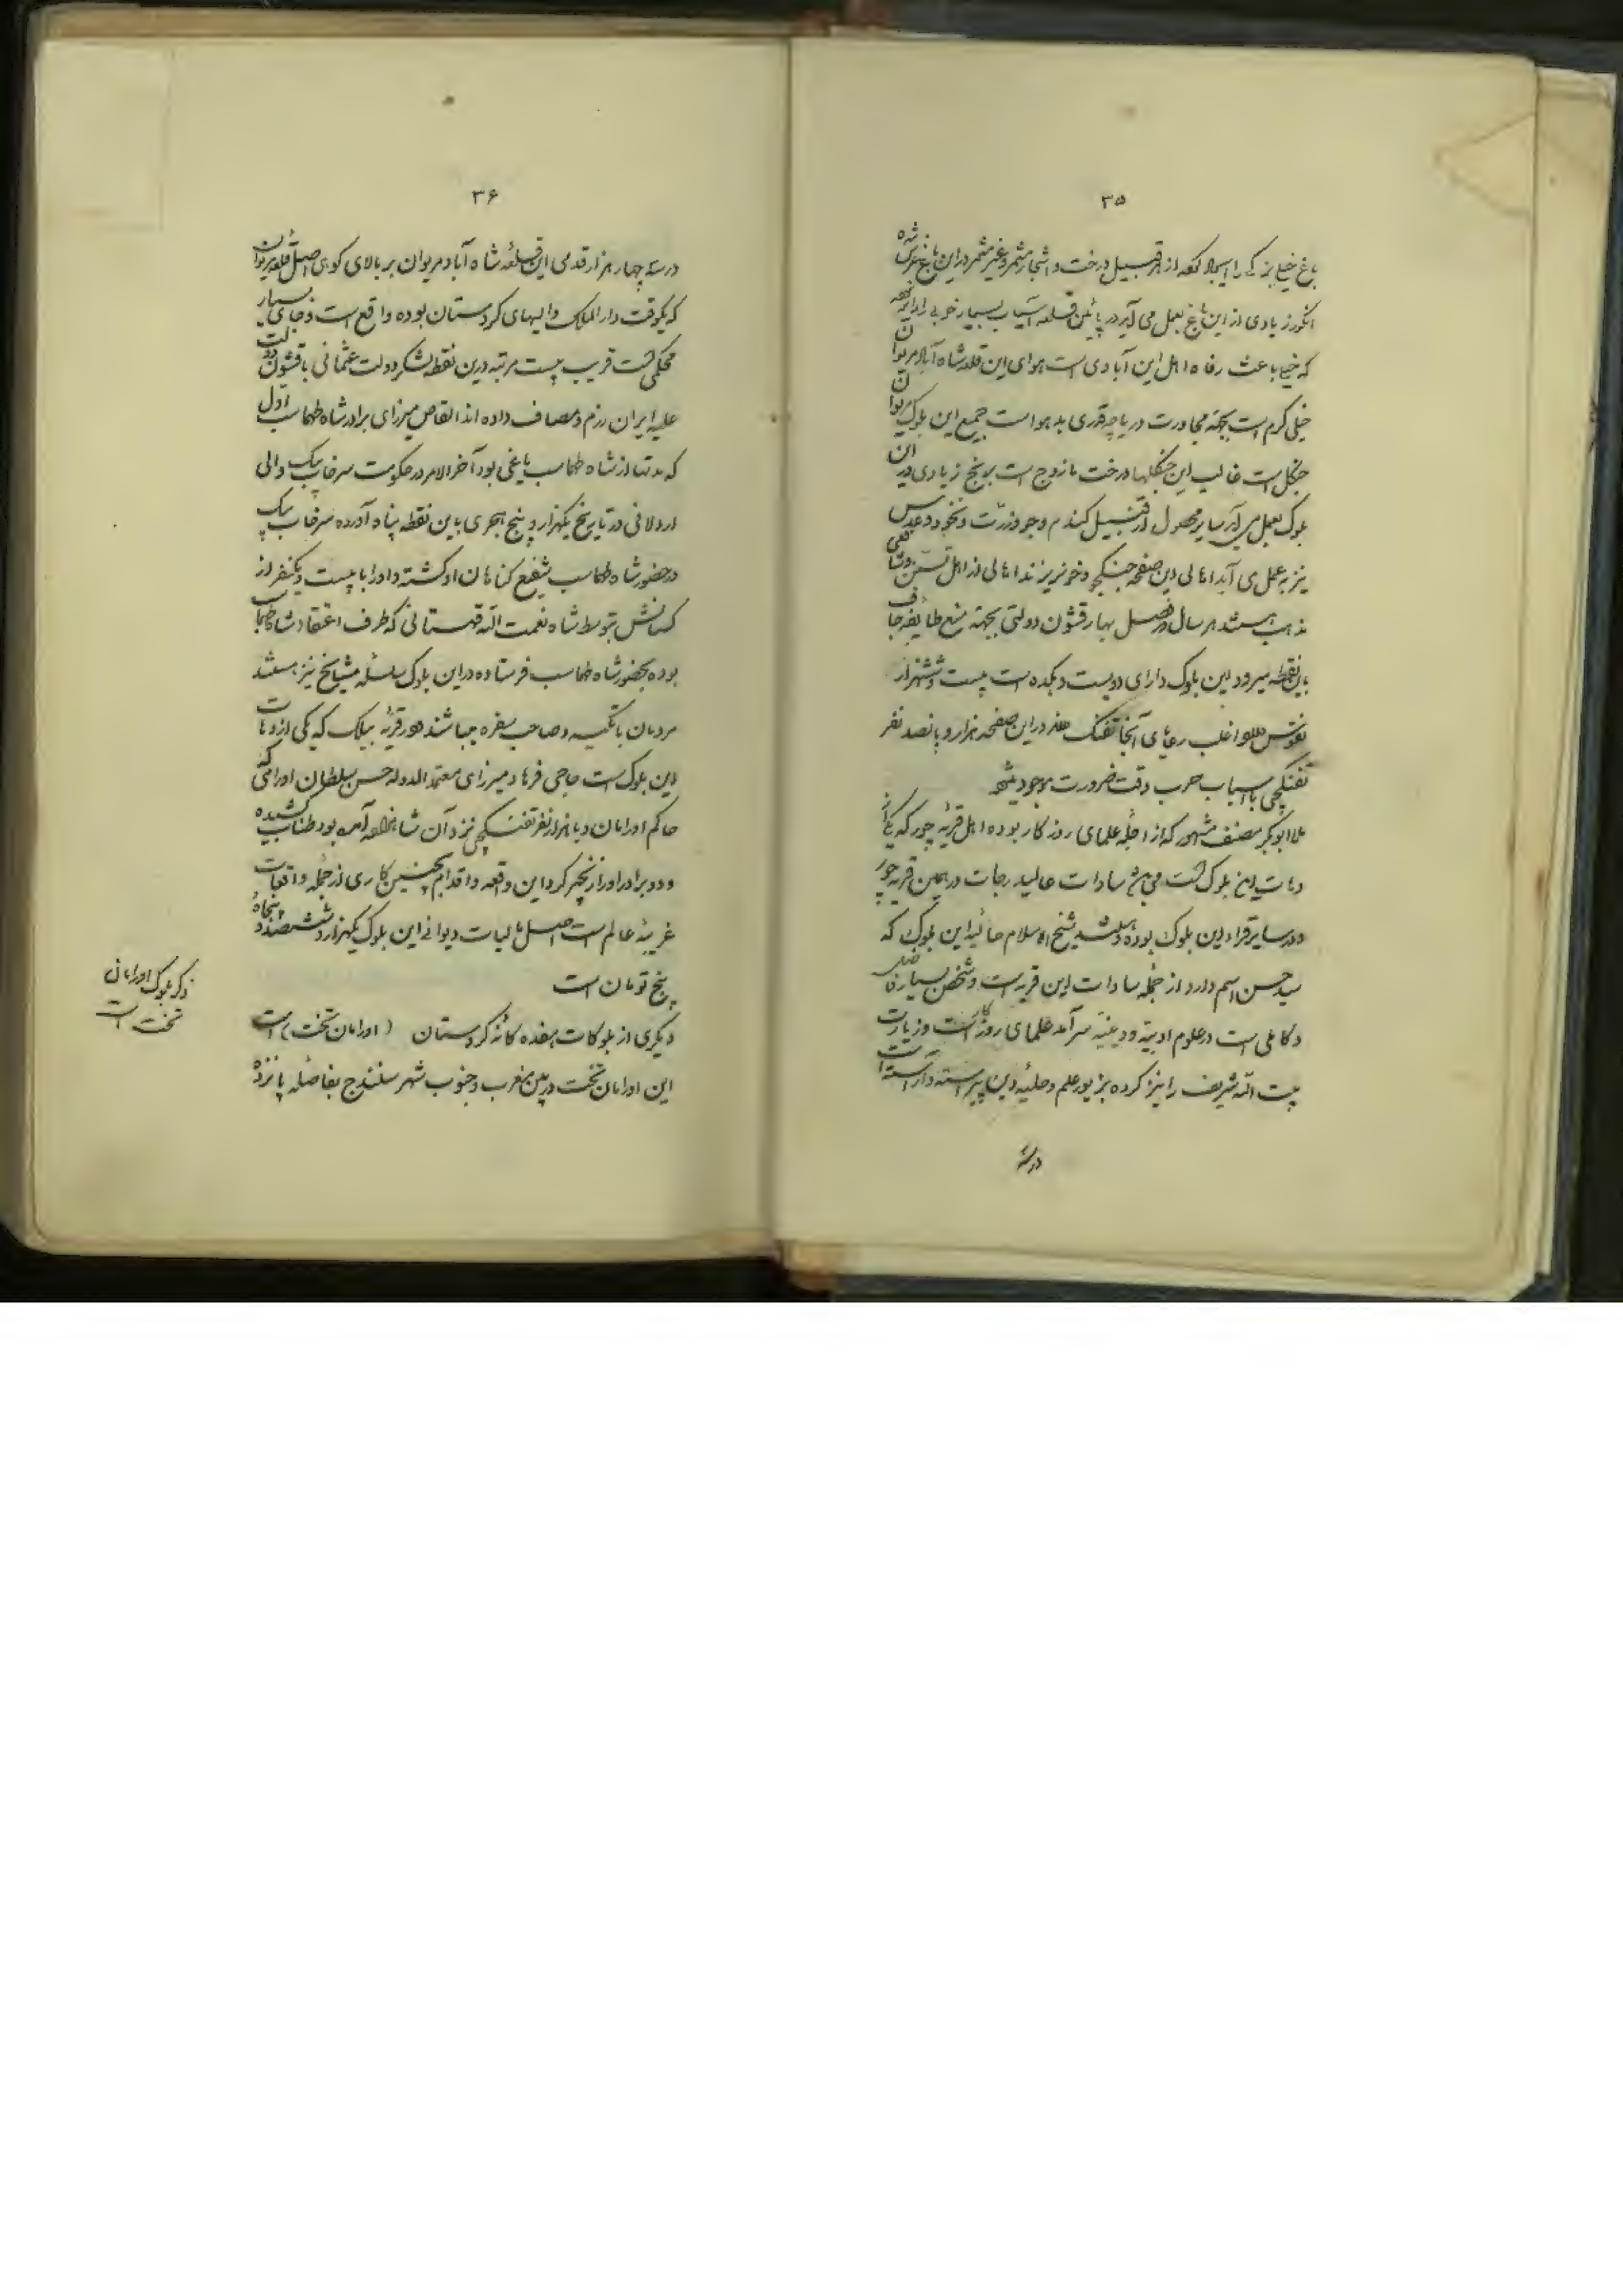 ۳۵
باغ خیلی بزرگی را ایجاد کرده از هر قبیل درخت و اشجار مثمر و غیر مثمر در این باغ غرس شده
انگور زیادی از این باغ بعمل می آید در پائین قلعه آسیاب بسیار خوبی دایر
که خیلی باعث رفاه اهل این آبادی است هوای این قلعه شاه آباد مریوان
خیلی گرم است بجهته مجاورت دریاچه قدری بد هوا است جمیع این بلوک مریوان
جنگل است غالب این جنگلها درخت مازوج است برنج زیادی در این
بلوک بعمل می آید سایر محصول از قبیل گندم و جو و ذرت و نخود و عدس
نیز به عمل می آید اهالی این صفحه جنگجو و خونریزند اهالی از اهل تسنن و شافعی
مذهب هستند هر سال در فصل بهار قشون دولتی بجهته منع طایفه جاف
باین نقطه میرود این بلوک دارای دویست و یکده است بیست و شش هزار
نفوس دارد اغلب رعایای آنجا تفنگ دارند در این صفحه هزار و پانصد نفر
تفنگچی با اسباب حرب وقت ضرورت موجود میشود
ملا ابوبکر مصنف مشهور که از اجله علمای روزگار بوده اهل قریه چور که یکی از
دهات این بلوک است می باشد سادات عالیدرجات در همین قریه چور
و در سایر قراء این بلوک بوده و هستند شیخ الاسلام حالیه این بلوک که
سید حسن اسم دارد از جمله سادات این قریه است و شخص بسیار فاضل
و کاملی است در علوم ادبیه و دینیه سرآمد علمای روزگار است و زیارت
بیت الله شریف را نیز کرده بزیور علم و حلیه دین پیراسته و آراسته است
در سه
۳۶
در سه چهار هزار قدمی این قلعه شاه آباد مریوان بر بالای کوهی اصل قلعه مریوان
که یکوقت دار الملک والیهای کردستان بوده واقع است و جای بسیار
محکمی است قریب بیست مرتبه درین نقطه لشکر دولت عثمانی با قشون دولت
علیه ایران رزم و مصاف داده اند القاص میرزای برادر شاه طهماسب اول
که مدتها از شاه طهماسب یاغی بود آخر الامر در حکومت سرخاب بیک والی
اردلانی در تاریخ یکهزار و پنج هجری باین نقطه پناه آورده سرخاب بیک
در حضور شاه طهماسب شفیع گناهان او گشته و او را با بیست و یکنفر از
کسانش بتوسط شاه نعمت الله قهستانی که طرف اعتقاد شاه طهماسب
بوده بحضور شاه طهماسب فرستاده در این بلوک سلسله مشایخ نیز هستند
مردمان با تکیه و صاحب سفره میباشند در قریه بیلک که یکی از دهات
این بلوک است حاجی فرهاد میرزای معتمد الدوله حسن سلطان اورامی که
حاکم اورامان و با هزار نفر تفنگچی نزد آن شاهزاده آمده بود طناب کشیده
و دو برادر او را زنجیر کرد این واقعه و اقدام بچنین کاری از جمله واقعات
غریبه عالم است اصل مالیات دیوانی این بلوک یکهزار و ششصد و پنجاه
پنج تومان است
دیگری از بلوکات هفده گانه کردستان (اورامان تخت) است
این اورامان تخت در بین مغرب و جنوب شهر سنندج بفاصله پانزده
ذکر بلوک اورامان
تخت است